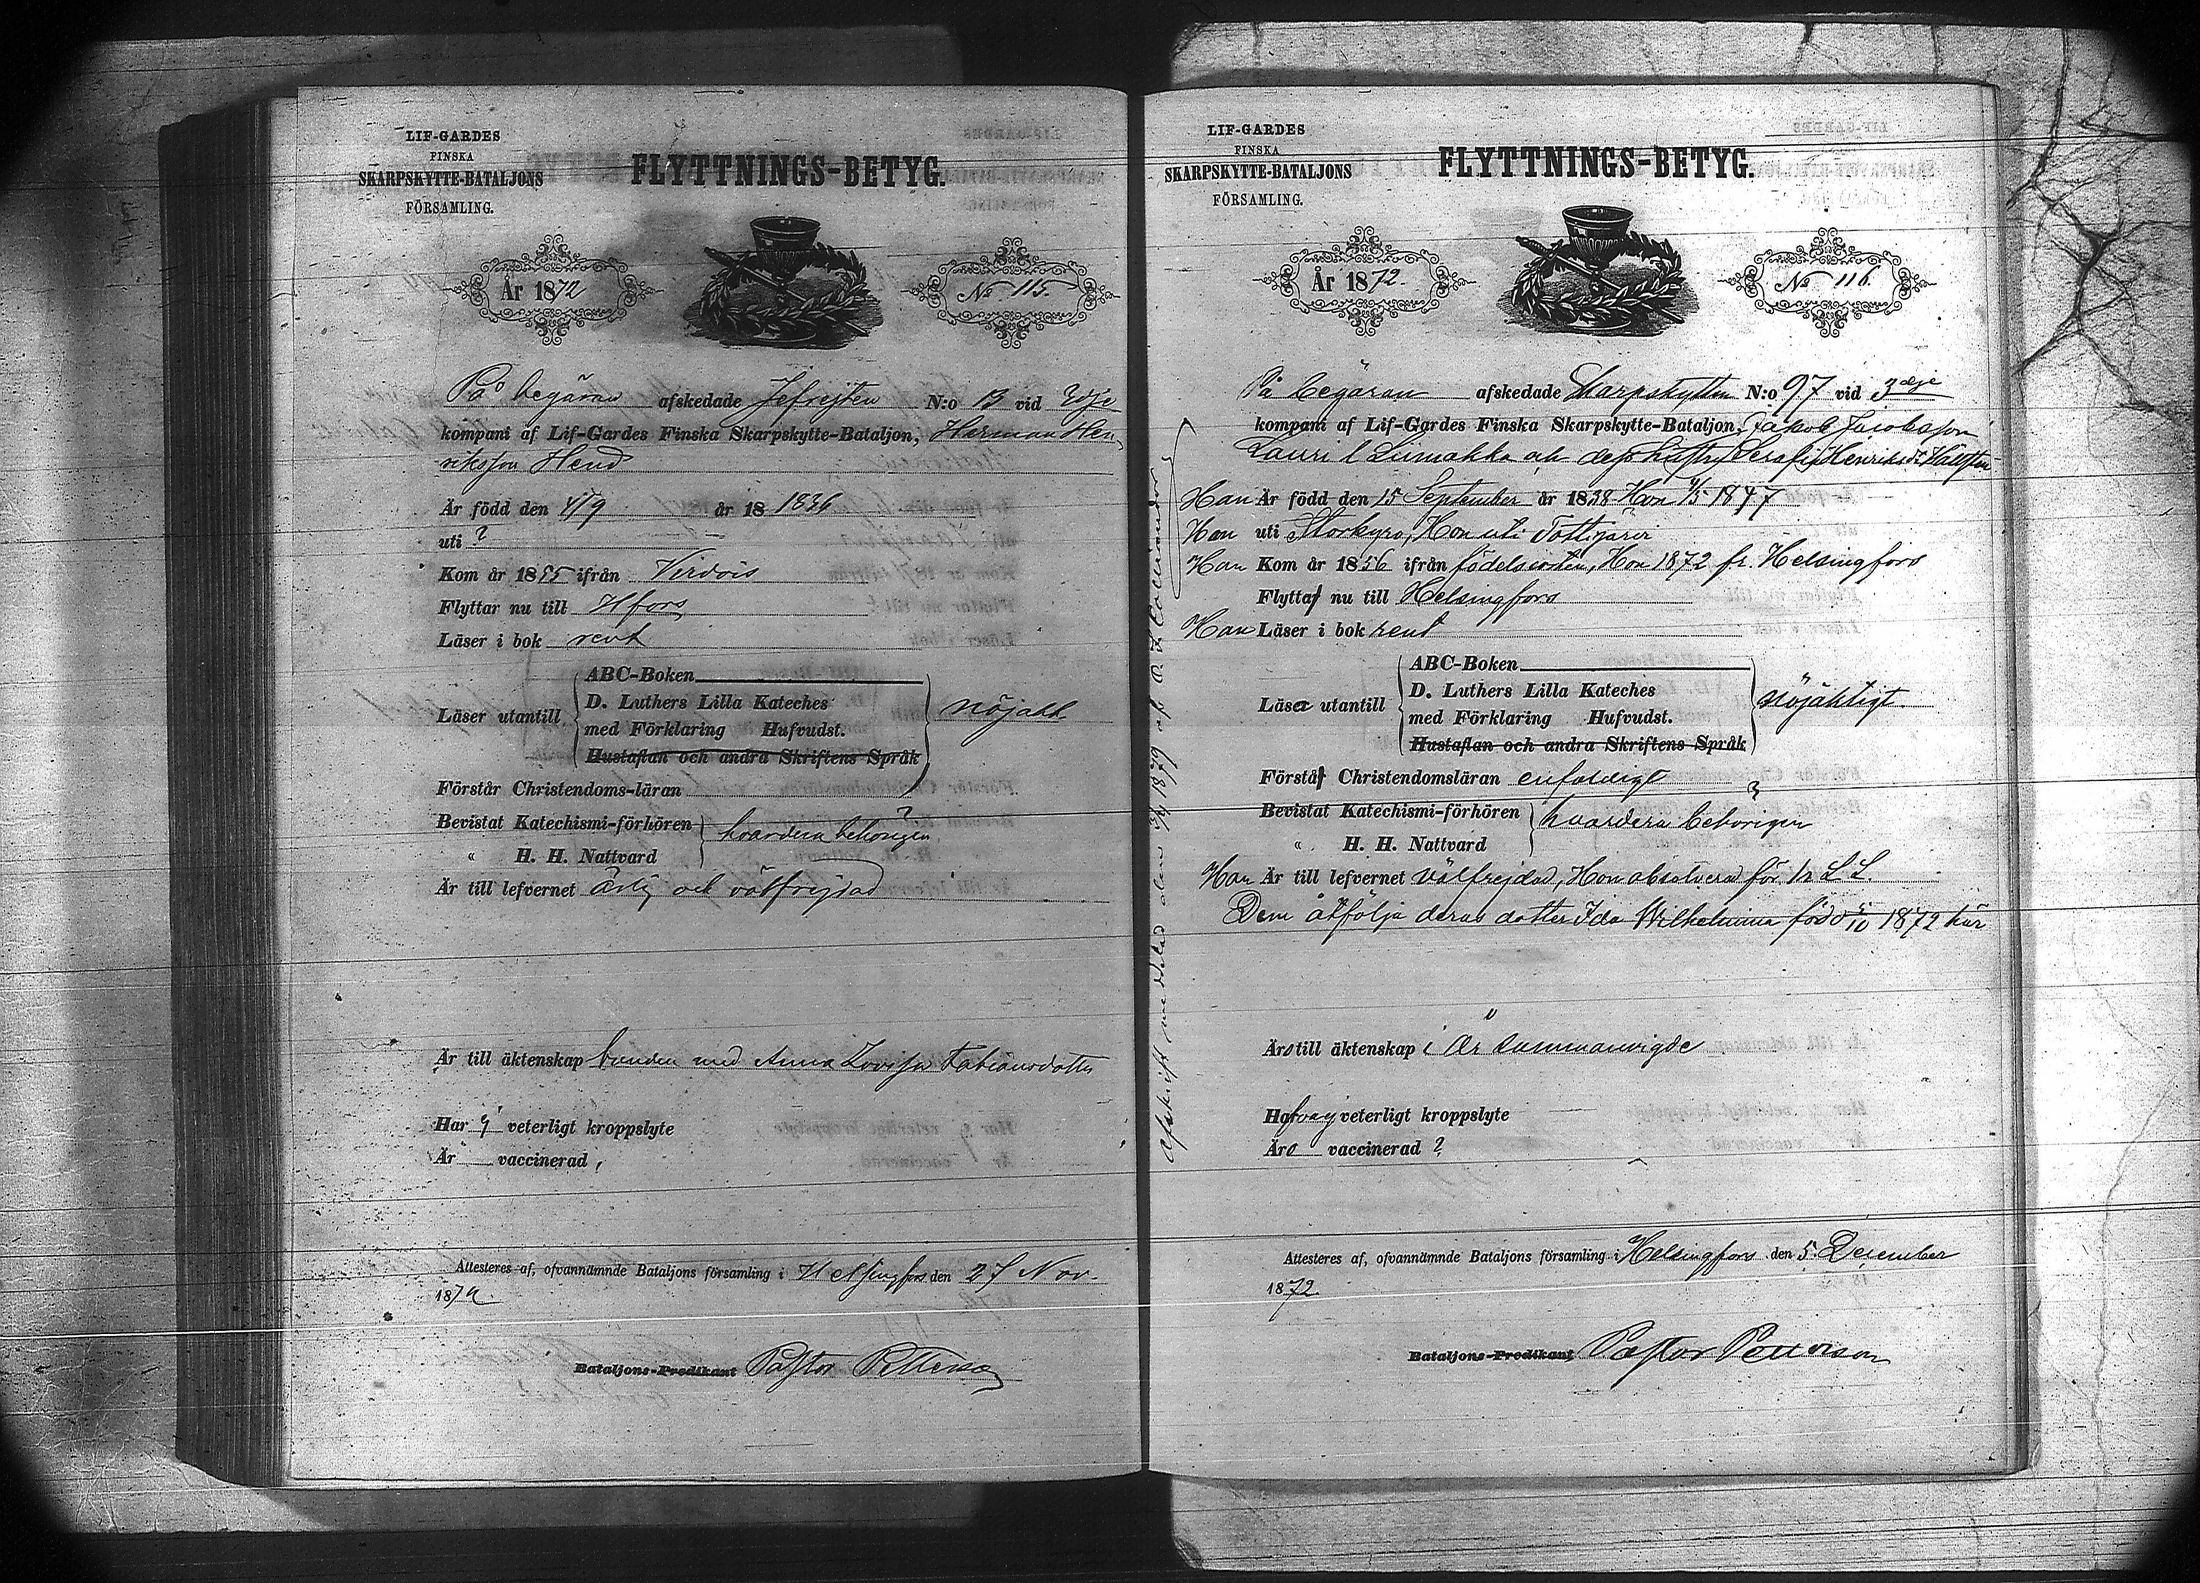 LIF-GARDES
FINSKA
SKARPSKYTTE-BATALJONS
FÖRSAMLING.
FLYTTNINGS-BETYG.
År 1872
No 115.
På begäran afskedade Jefrejten N:o 13 vid 2dje
kompani af Lif-Gardes Finska Skarpskytte-Bataljon, Herman Hen
riksson Heud
Är född den 4/9 år 18 1836
uti ?
Kom år 1855 ifrån Virdois
Flyttar nu till Hfors
Läser i bok rent
ABC-Boken
D. Luthers Lilla Kateches
Läser utantill nöjakt
med Förklaring Hufvudst.
Hustaflan och andra Skriftens Språk
Förstår Christendoms-läran
Bevistat Katechismi-förhören hvardera behörigen ?
" H. H. Nattvard
Är till lefvernet ärlig och välfrejdad
Är till äktenskap bunden med Anna Lovisa Fabiansdotter
Har ej veterligt kroppslyte
Är vaccinerad,
Attesteres af, ofvannämnde Bataljons församling i Helsingfors den 27 Nov.
1872.
Bataljons-Predikant Pastor Petterson
LIF-GARDES
FINSKA
SKARPSKYTTE-BATALJONS
FÖRSAMLING.
FLYTTNINGS-BETYG.
År 1872.
No 116.
På begäran afskedade Skarpskytten N:o 97 vid 3dje
kompani af Lif-Gardes Finska Skarpskytte-Bataljon, Jakob Jacobsson
Lauri l. Liimakka och dess hustru Serafia Henriksdr
Han Är född den 15 September år 1838 Hon 4/5 1847
Han uti Storkyro, Hon uti Tottijärvi
Han Kom år 1856 ifrån födelseorten, Hon 1872 fr. Helsingfors
Flytta nu till Helsingfors
Han Läser i bok rent
ABC-Boken
D. Luthers Lilla Kateches
Läser utantill nöjaktigt.
med Förklaring Hufvudst.
Hustaflan och andra Skriftens Språk
Förstå Christendomsläran enfaldigt
Bevistat Katechismi-förhören hvardera behörigen ?
" H. H. Nattvard
Han Är till lefvernet välfrejdad, Hon absolverad för 1n L. S.
Dem åtfölja deras dotter Ida Wilhelmina född 5/10 1872 här
Äro till äktenskap i Är sammanvigde
Hafva ej veterligt kroppslyte
Äro vaccinerad ?
Attesteres af, ofvannämnde Bataljons församling i Helsingfors den 5. December
1872.
Bataljons-Predikant Pastor Petterson
Afskrift meddelad den 1879